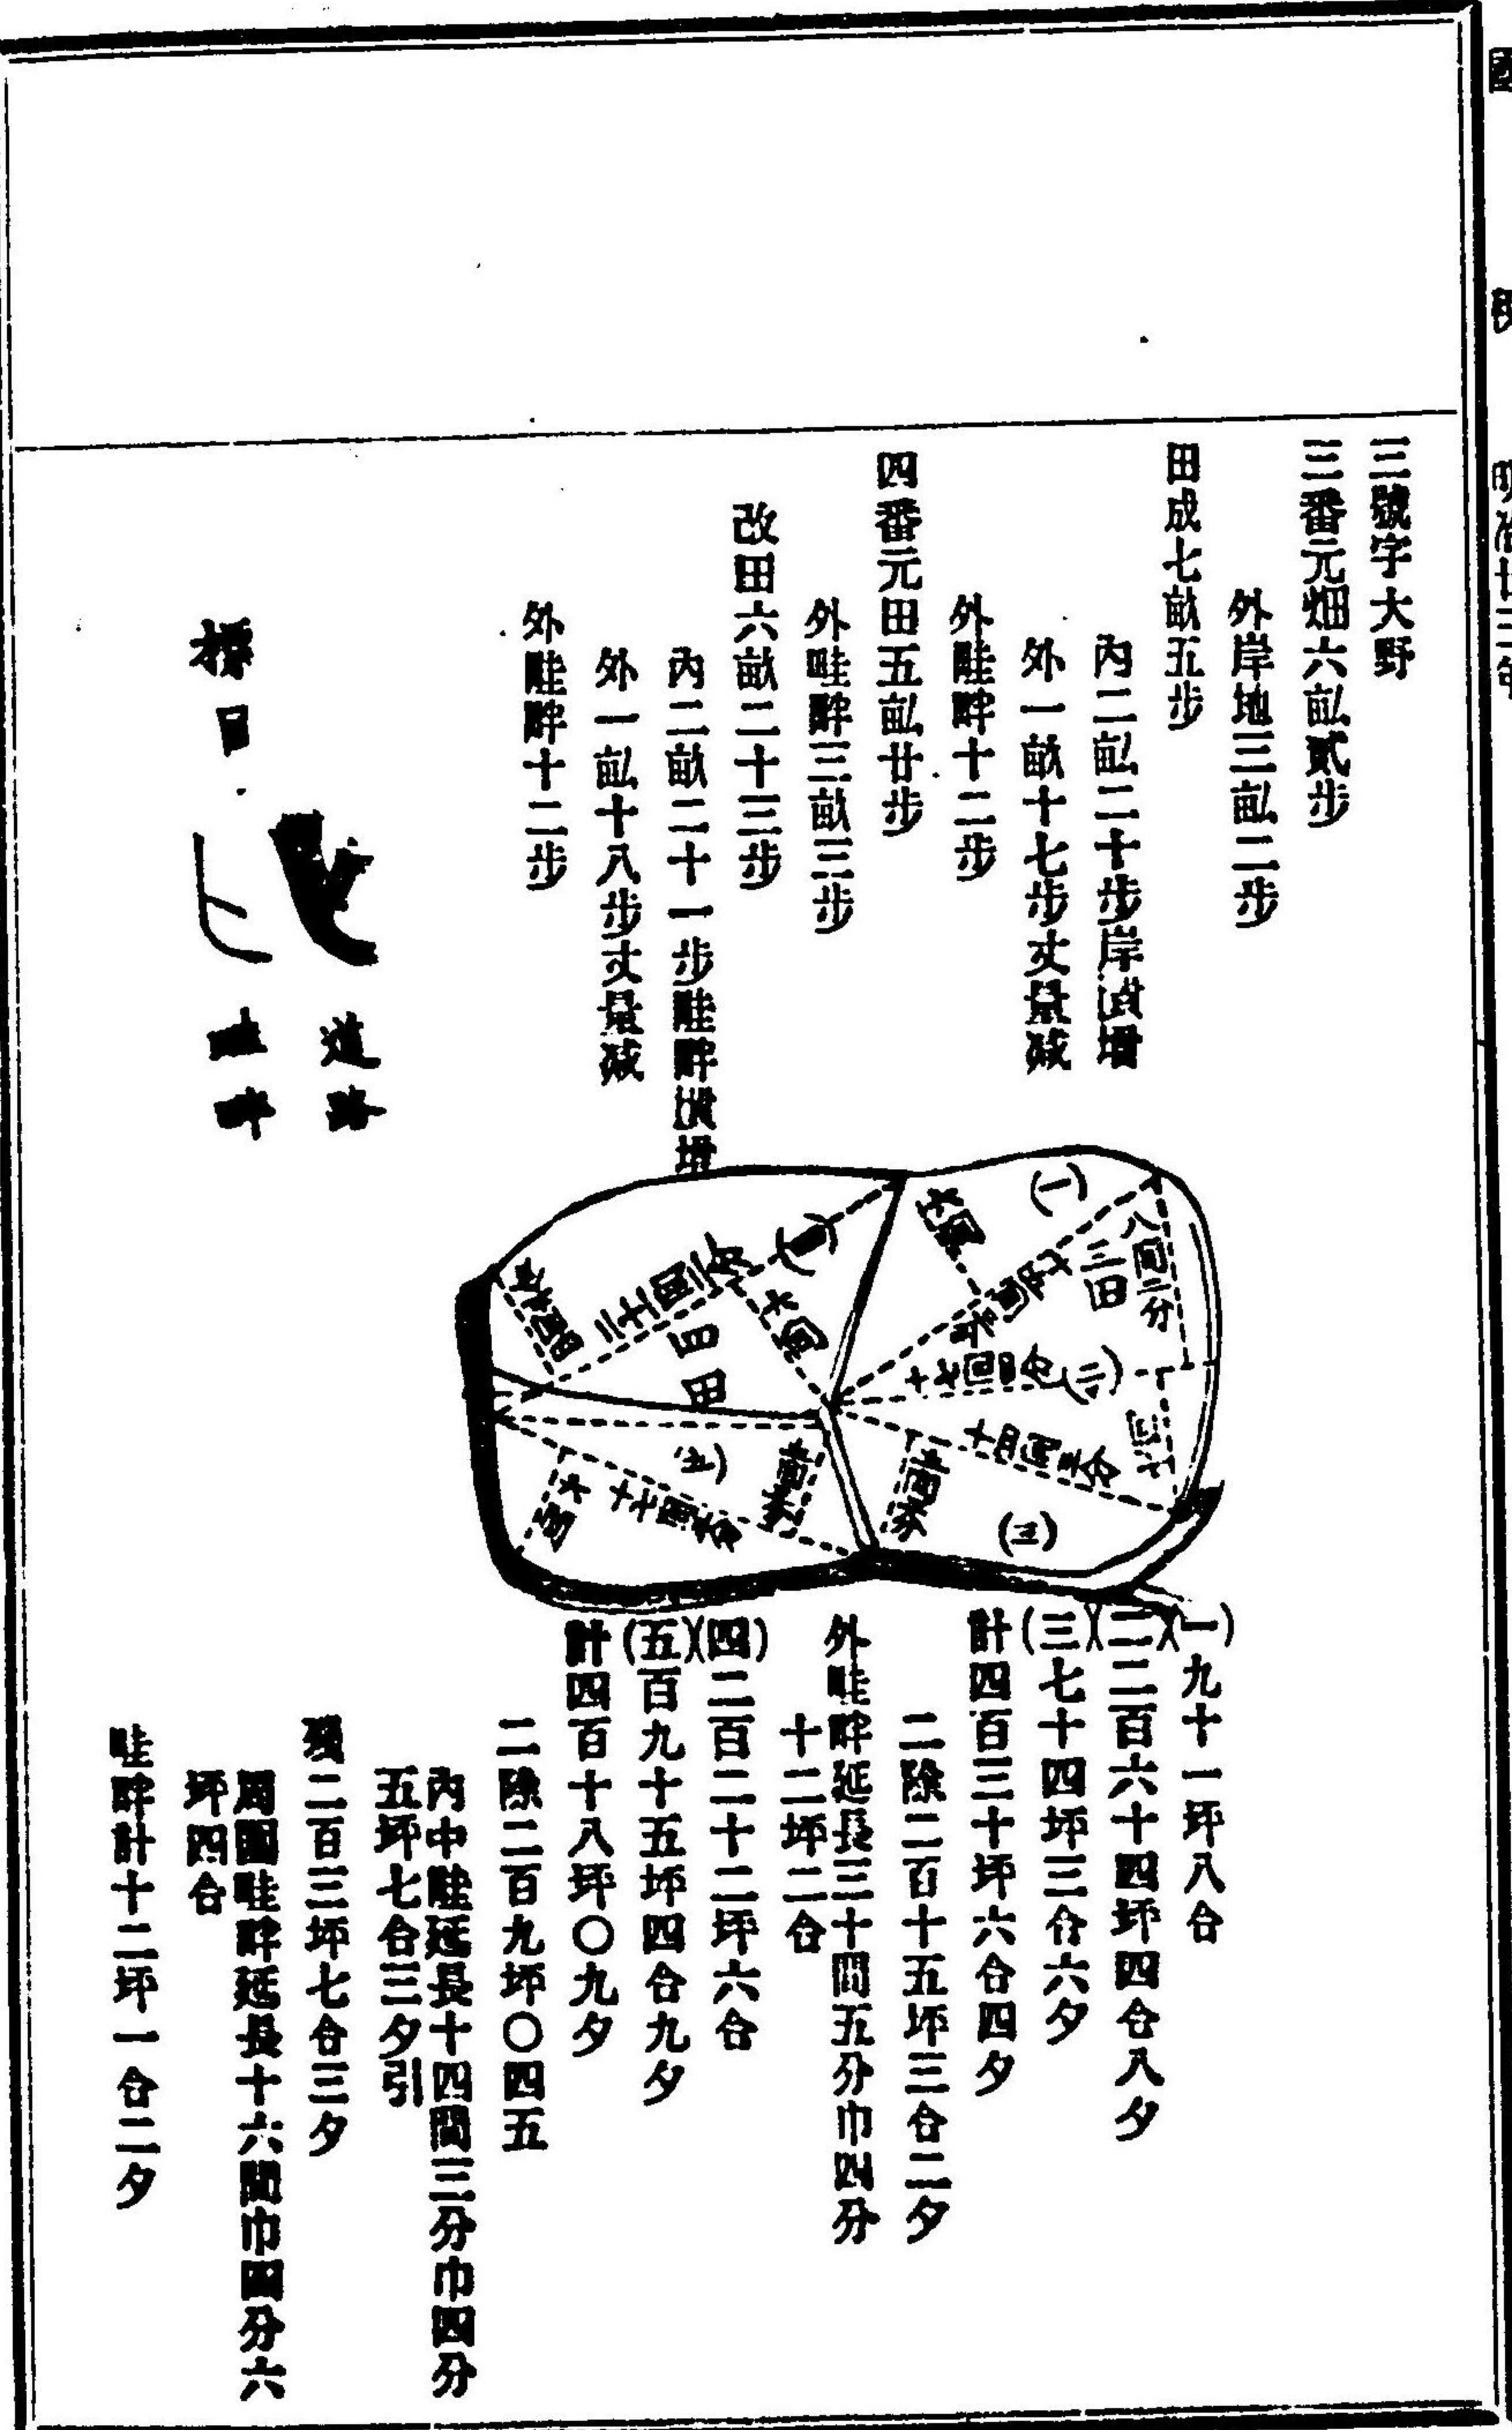 三號字大野
三番元畑六畝貳步
外岸地三畝二步
田成七畝五步
內二畝二十步岸潰增
外一畝十七步丈量減
外畦畔十二步
四番元田五畝廿步
外畦畔三畝三步
改田六畝二十三步
內二畝二十一步畦畔潰增
外一畝十八步丈量減
外畦畔十二步
標目
道路
畦畔
(一)
八間二分
三田
(二)
(三)
十間
四田
(五)
(一)九十一坪八合
(二)二百六十四坪四合八夕
(三)七十四坪三合六夕
計四百三十坪六合四夕
二除二百十五坪三合二夕
外畦畔延長三十間五分巾四分
十二坪二合
(四)二百二十二坪六合
(五)百九十五坪四合九夕
計四百十八坪〇九夕
二除二百九坪〇四五
內中畦延長十四間三分巾四分
五坪七合三夕引
殘二百三坪七合三夕
周圍畦畔延長十六間巾四分六
坪四合
畦畔計十二坪一合二夕